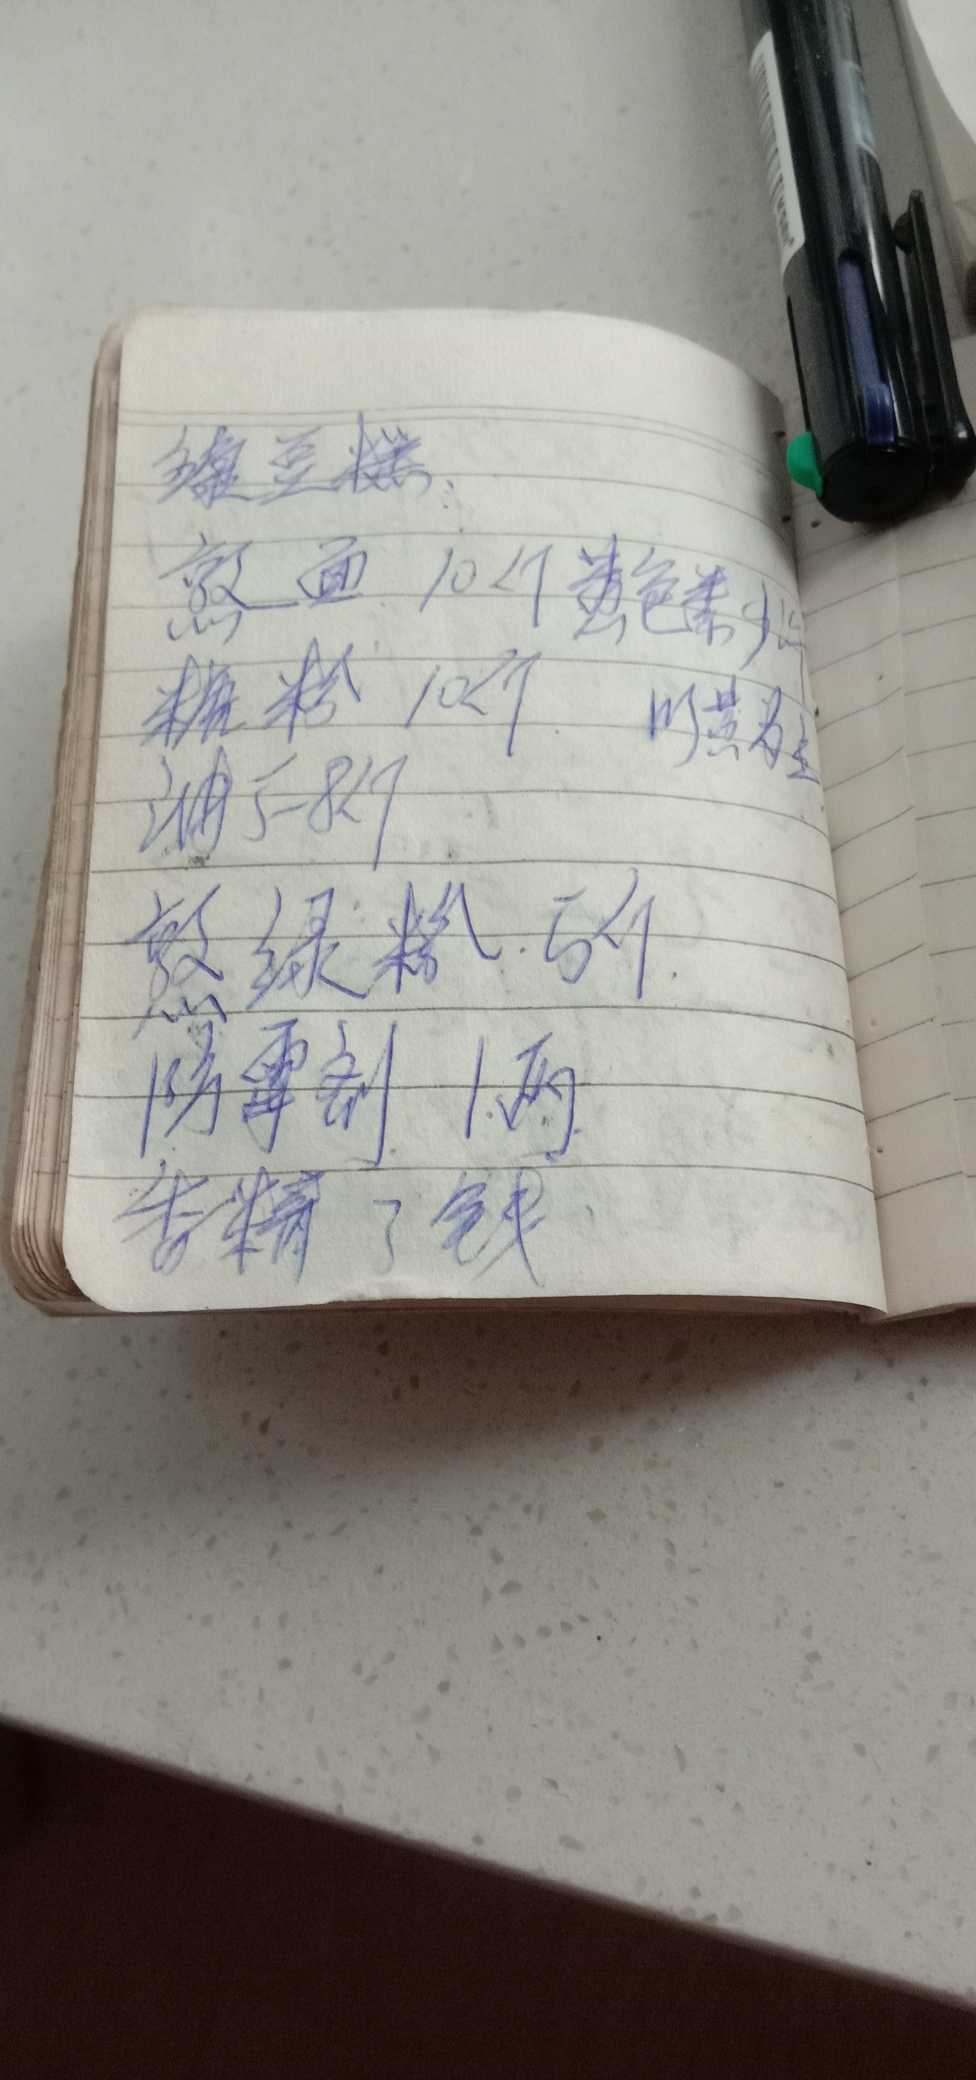 绿豆糕
熟面 10斤 黄色素少许
糖粉 10斤 以黄为主
油5-8斤
熟绿粉 5斤
防霉剂 1两
香精 3钱